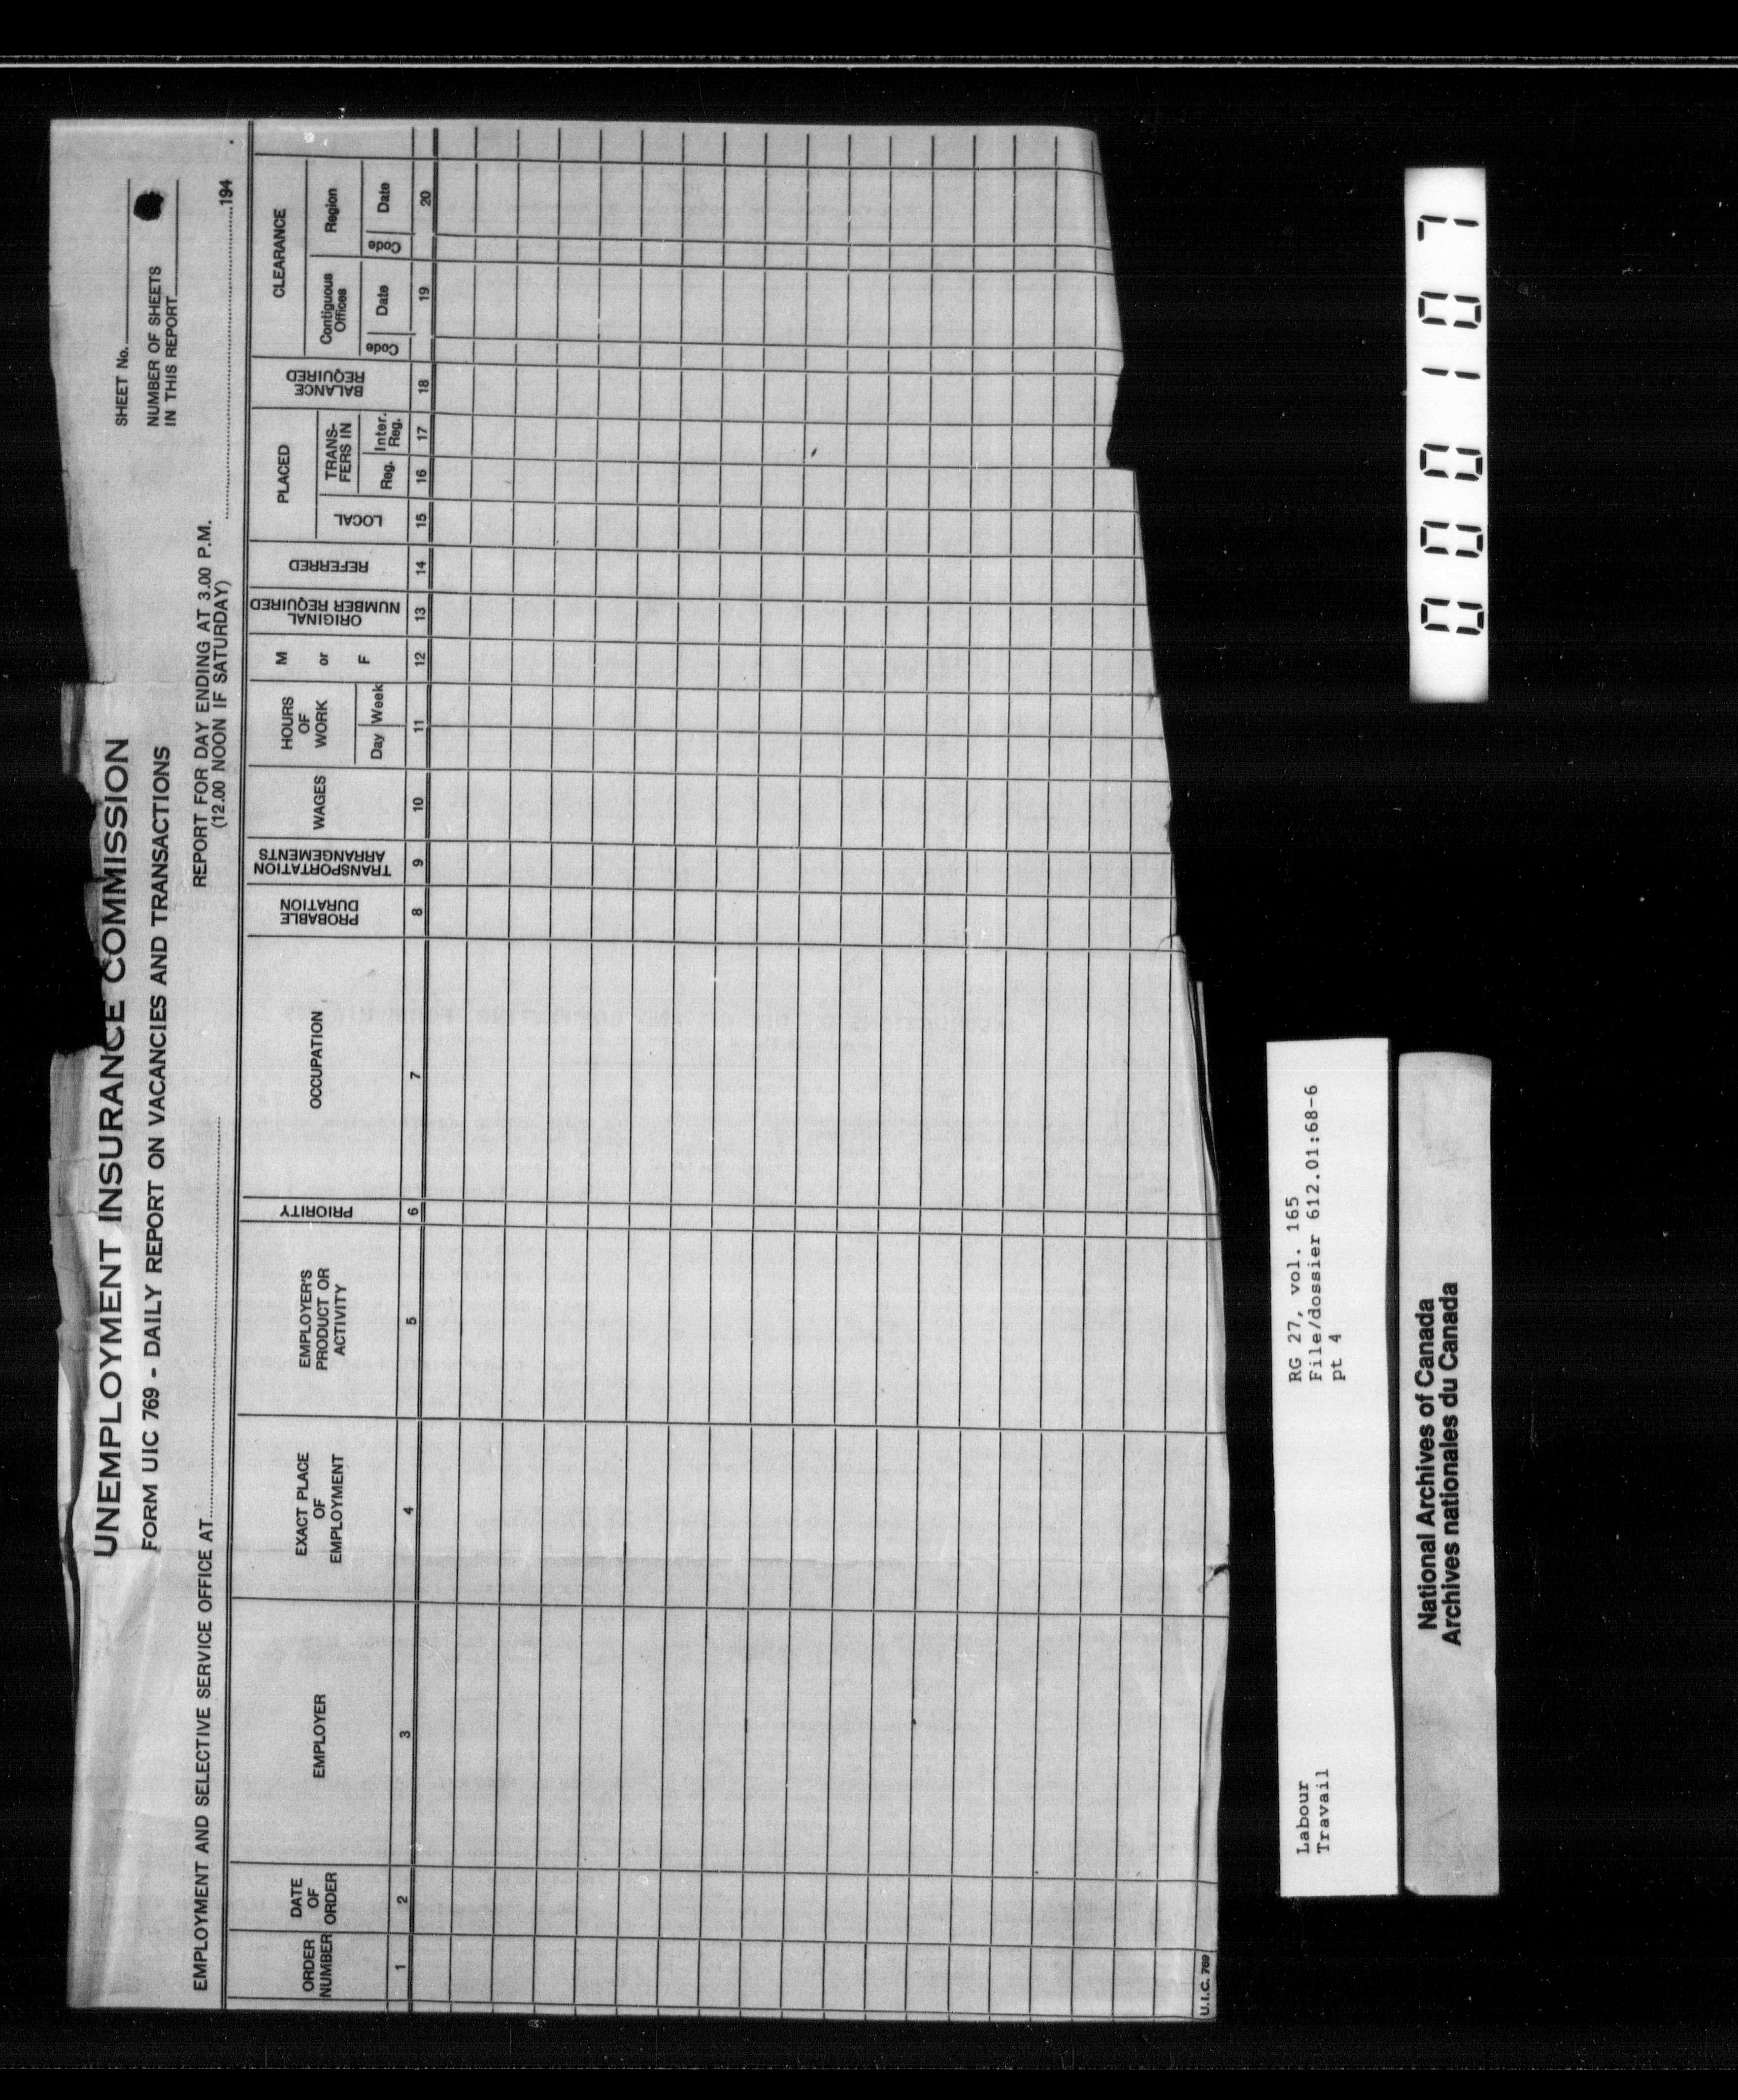 UNEMPLOYMENT INSURANCE COMMISSION
FORM UIC 769 - DAILY REPORT ON VACANCIES AND TRANSACTIONS
SHEET No.
NUMBER OF SHEETS
IN THIS REPORT
EMPLOYMENT AND SELECTIVE SERVICE OFFICE AT
REPORT FOR DAY ENDING AT 3.00 P.M.
(12.00 NOON IF SATURDAY)
194
ORDER
NUMBER
1
DATE
OF
ORDER
2
EMPLOYER
3
EXACT PLACE
OF
EMPLOYMENT
4
EMPLOYER'S
PRODUCT OR
ACTIVITY
5
PRIORITY
6
OCCUPATION
7
PROBABLE
DURATION
8
TRANSPORTATION
ARRANGEMENTS
9
WAGES
10
HOURS
OF
WORK
Day Week
11
M
or
F
12
ORIGINAL
NUMBER REQUIRED
13
REFERRED
14
PLACED
LOCAL
15
TRANS-
FERS IN
Reg.
16
Inter.
Reg.
17
BALANCE
REQUIRED
18
CLEARANCE
Contiguous
Offices
Code Date
19
Region
Code Date
20
U.I.C. 769
Labour
Travail
RG 27, vol. 165
File/dossier 612.01:68-6
pt 4
National Archives of Canada
Archives nationales du Canada
000107